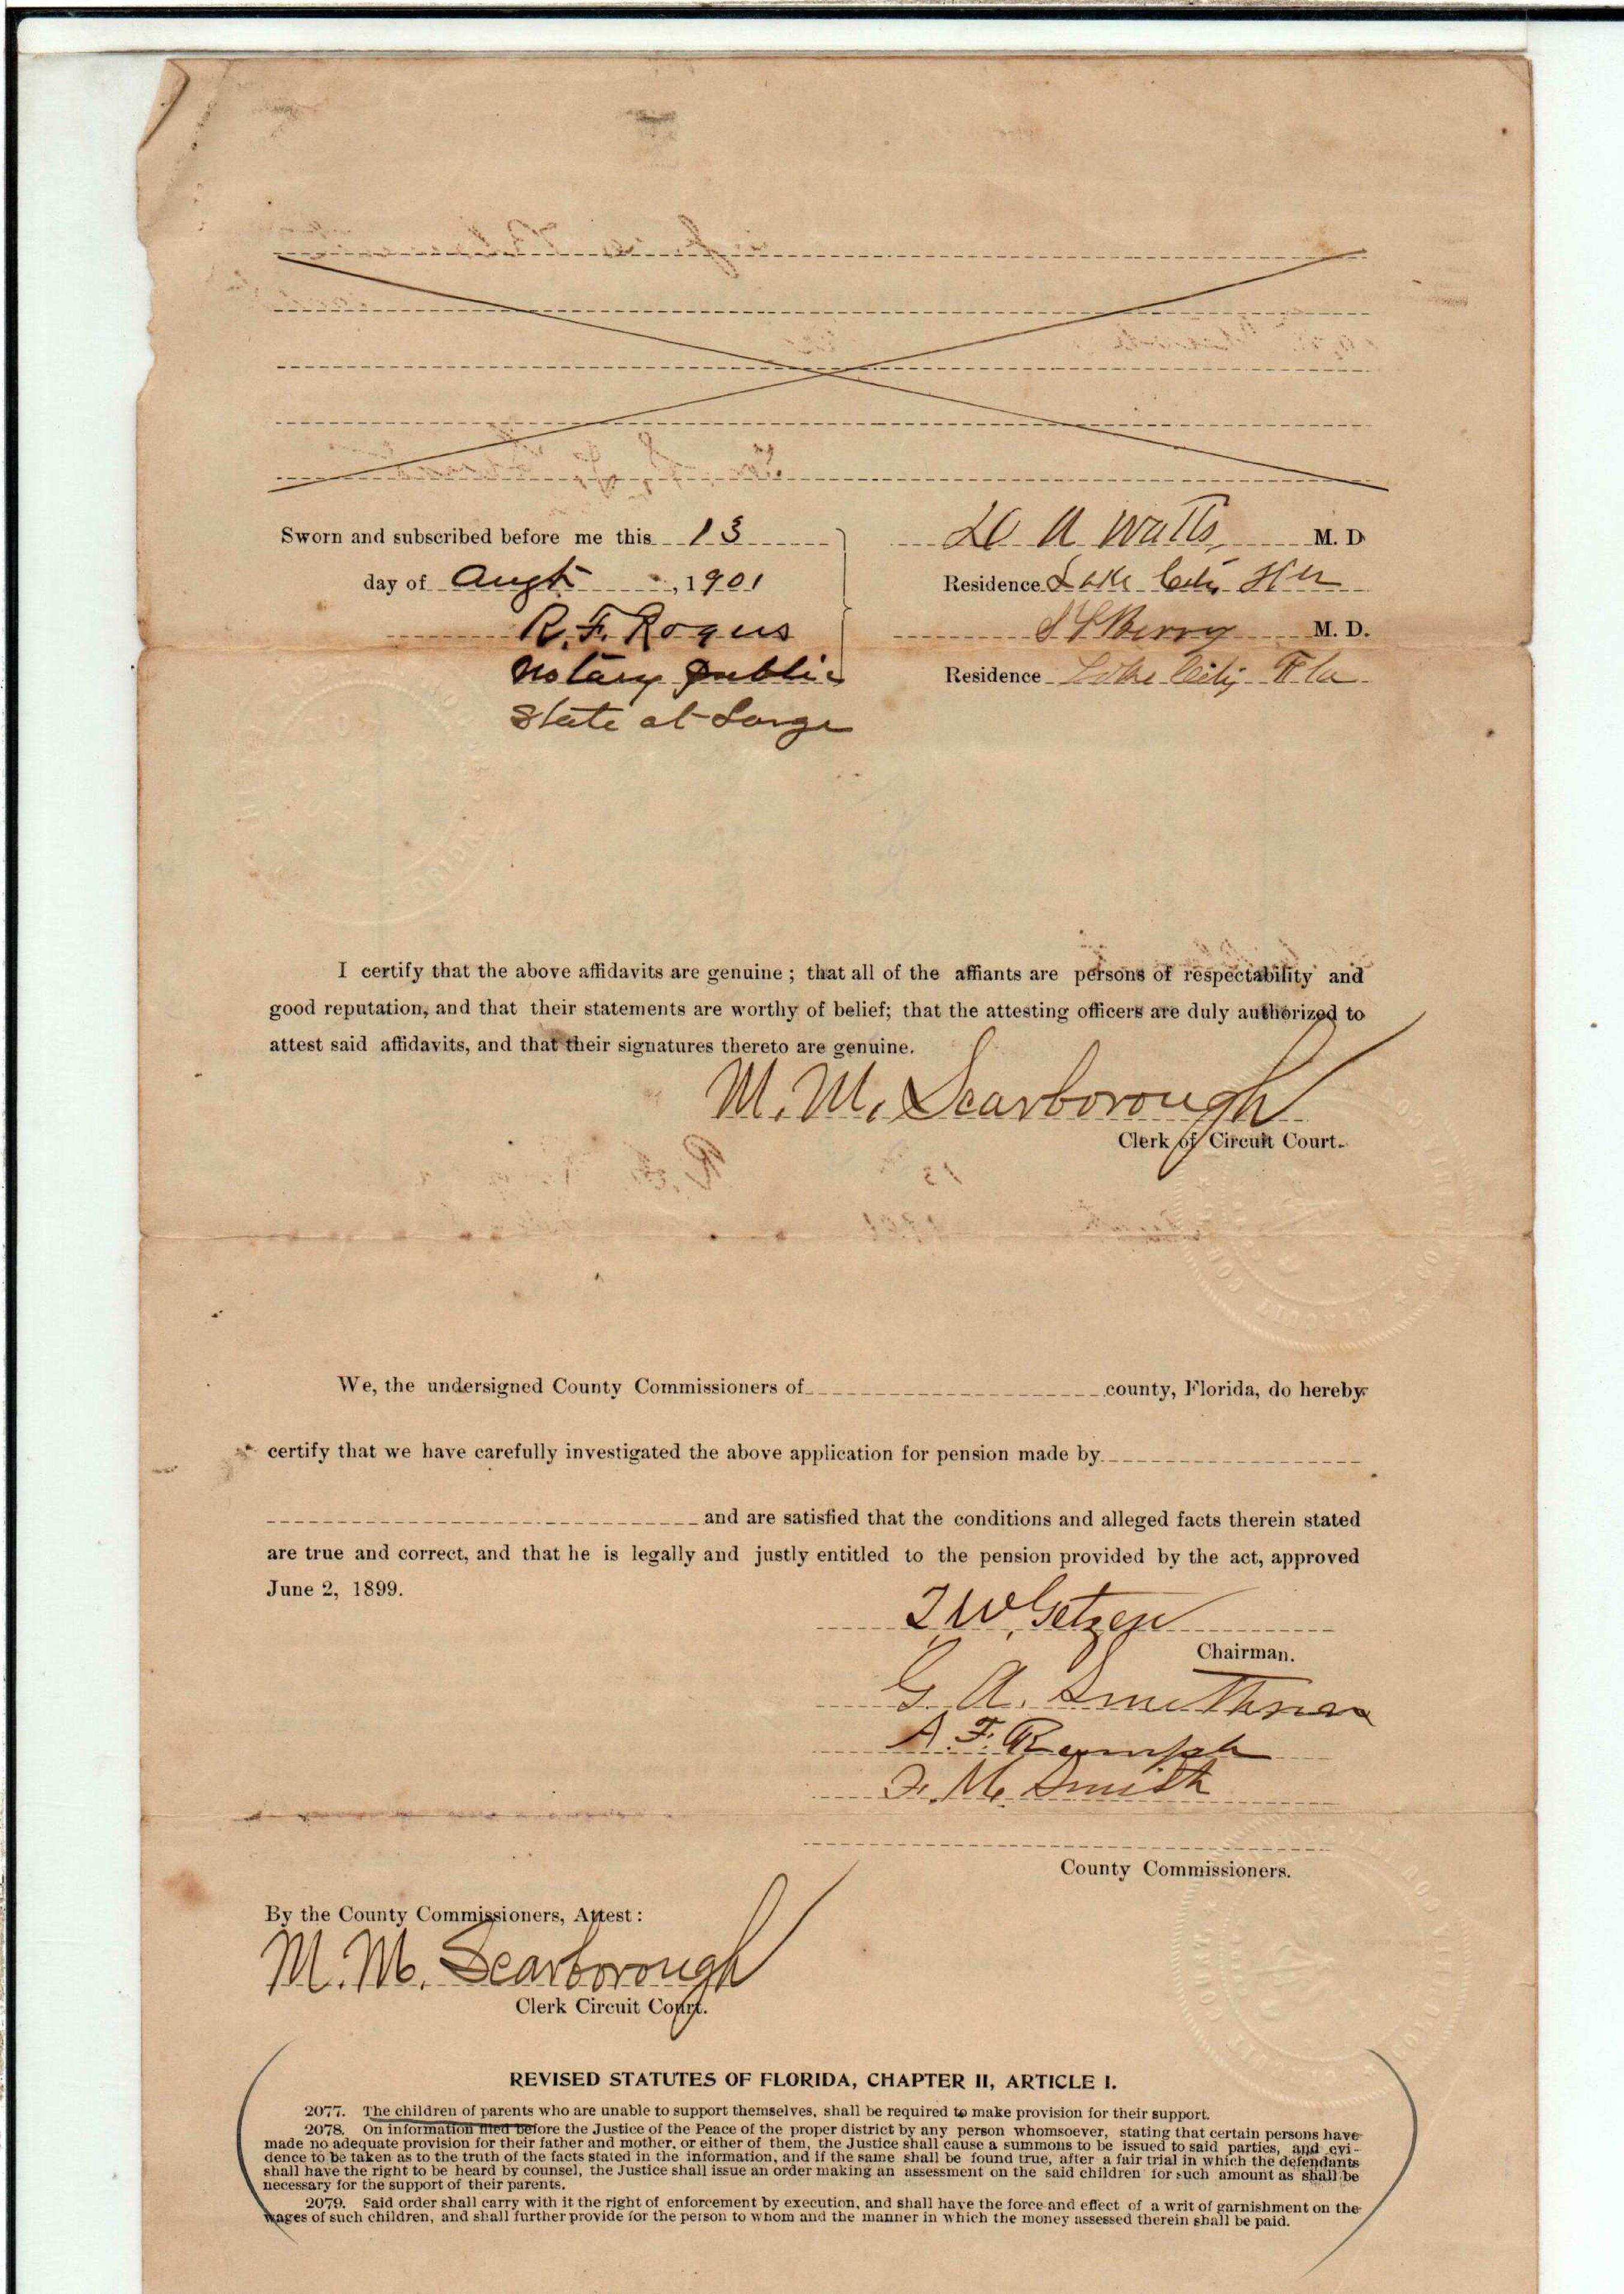 Sworn and subscribed before me this 13
day of Augt, 1901
R. F. Rogers
Notary Public
State at Large
A Watts, M. D
Residence Lake City, Fla
Berry M. D.
Residence Lake City Fla
I certify that the above affidavits are genuine; that all of the affiants are persons of respectability and
good reputation, and that their statements are worthy of belief; that the attesting officers are duly authorized to
attest said affidavits, and that their signatures thereto are genuine.
M. M. Scarborough
Clerk of Circuit Court.
We, the undersigned County Commissioners of county, Florida, do hereby
certify that we have carefully investigated the above application for pension made by
and are satisfied that the conditions and alleged facts therein stated
are true and correct, and that he is legally and justly entitled to the pension provided by the act, approved
June 2, 1899.
T. W. Getzen
Chairman.
G. A. Smithson
A. F. Rumph
F. M. Smith
County Commissioners.
By the County Commissioners, Attest:
M. M. Scarborough
Clerk Circuit Court.
REVISED STATUTES OF FLORIDA, CHAPTER II, ARTICLE I.
2077. The children of parents who are unable to support themselves, shall be required to make provision for their support.
2078. On information filed before the Justice of the Peace of the proper district by any person whomsoever, stating that certain persons have
made no adequate provision for their father and mother, or either of them, the Justice shall cause a summons to be issued to said parties, and evi-
dence to be taken as to the truth of the facts stated in the information, and if the same shall be found true, after a fair trial in which the defendants
shall have the right to be heard by counsel, the Justice shall issue an order making an assessment on the said children for such amount as shall be
necessary for the support of their parents.
2079. Said order shall carry with it the right of enforcement by execution, and shall have the force and effect of a writ of garnishment on the
wages of such children, and shall further provide for the person to whom and the manner in which the money assessed therein shall be paid.